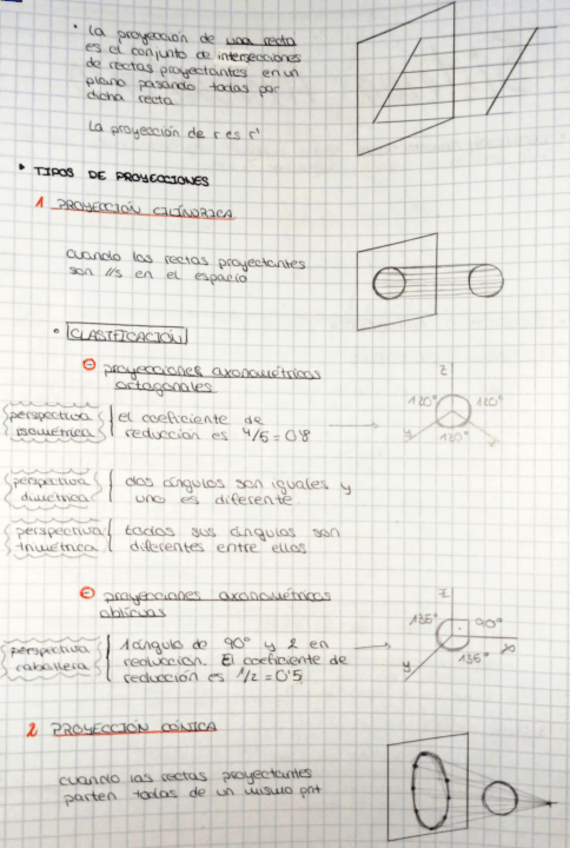 • La proyección de una recta
es el conjunto de intersecciones
de rectas proyectantes en un
plano pasando todas por
dicha recta
La proyección de r es r'
• TIPOS DE PROYECCIONES
1 PROYECCIÓN CILÍNDRICA
cuando las rectas proyectantes
son //s en el espacio
• CLASIFICACIÓN
proyecciones axonométricas
ortogonales
perspectiva
isométrica
el coeficiente de
reducción es 4/5 = 0'8
z
120° 120°
y 120°
perspectiva
dimétrica
dos ángulos son iguales y
uno es diferente
perspectiva
trimétrica
todos sus ángulos son
diferentes entre ellos
proyecciones axonométricas
oblicuas
perspectiva
caballera
1 ángulo de 90° y 2 en
reducción. El coeficiente de
reducción es 1/2 = 0'5
z
135° 90°
x
y 135°
2 PROYECCIÓN CÓNICA
cuando las rectas proyectantes
parten todas de un mismo pnt